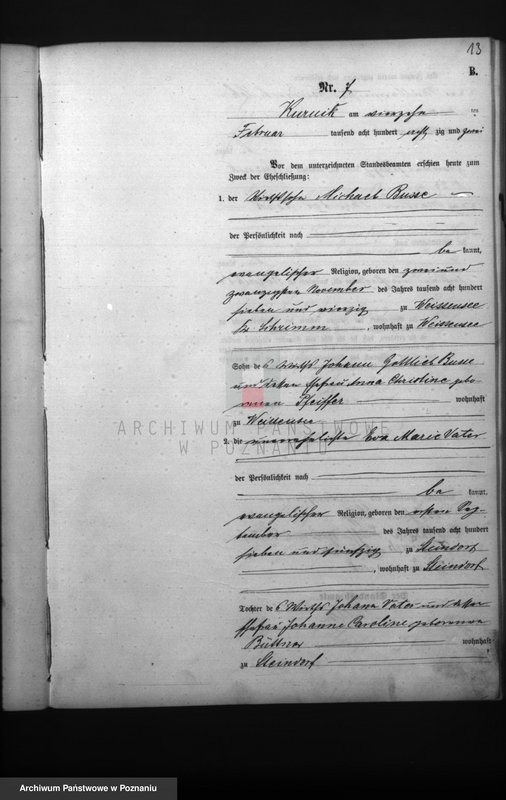 13
B.
Nr. 7
Kurnik am vierzehn ten
Februar tausend acht hundert acht zig und zwei
Vor dem unterzeichneten Standesbeamten erschien heute zum
Zweck der Eheschließung:
1. der Wirthssohn Michael Busse
der Persönlichkeit nach
be kannt,
evangelischer Religion, geboren den zweiund
zwanzigsten November des Jahres tausend acht hundert
sieben und vierzig zu Weissensee
Kr. Schrimm, wohnhaft zu Weissensee
Sohn des Wirths Johann Gottlieb Busse
und dessen Ehefrau Anna Christine gebo-
renen Pfeiffer wohnhaft
zu Weissensee
ARCHIWUM PAŃSTWOWE
W POZNANIU
2. die unverehelichte Eva Marie Vater
der Persönlichkeit nach
be kannt,
evangelischer Religion, geboren den ersten Sep-
tember des Jahres tausend acht hundert
sieben und fünfzig zu Steindorf
, wohnhaft zu Steindorf
Tochter des Wirths Johann Vater und dessen
Ehefrau Johanne Caroline geborenen
Büttner wohnhaft
zu Steindorf
Archiwum Państwowe w Poznaniu